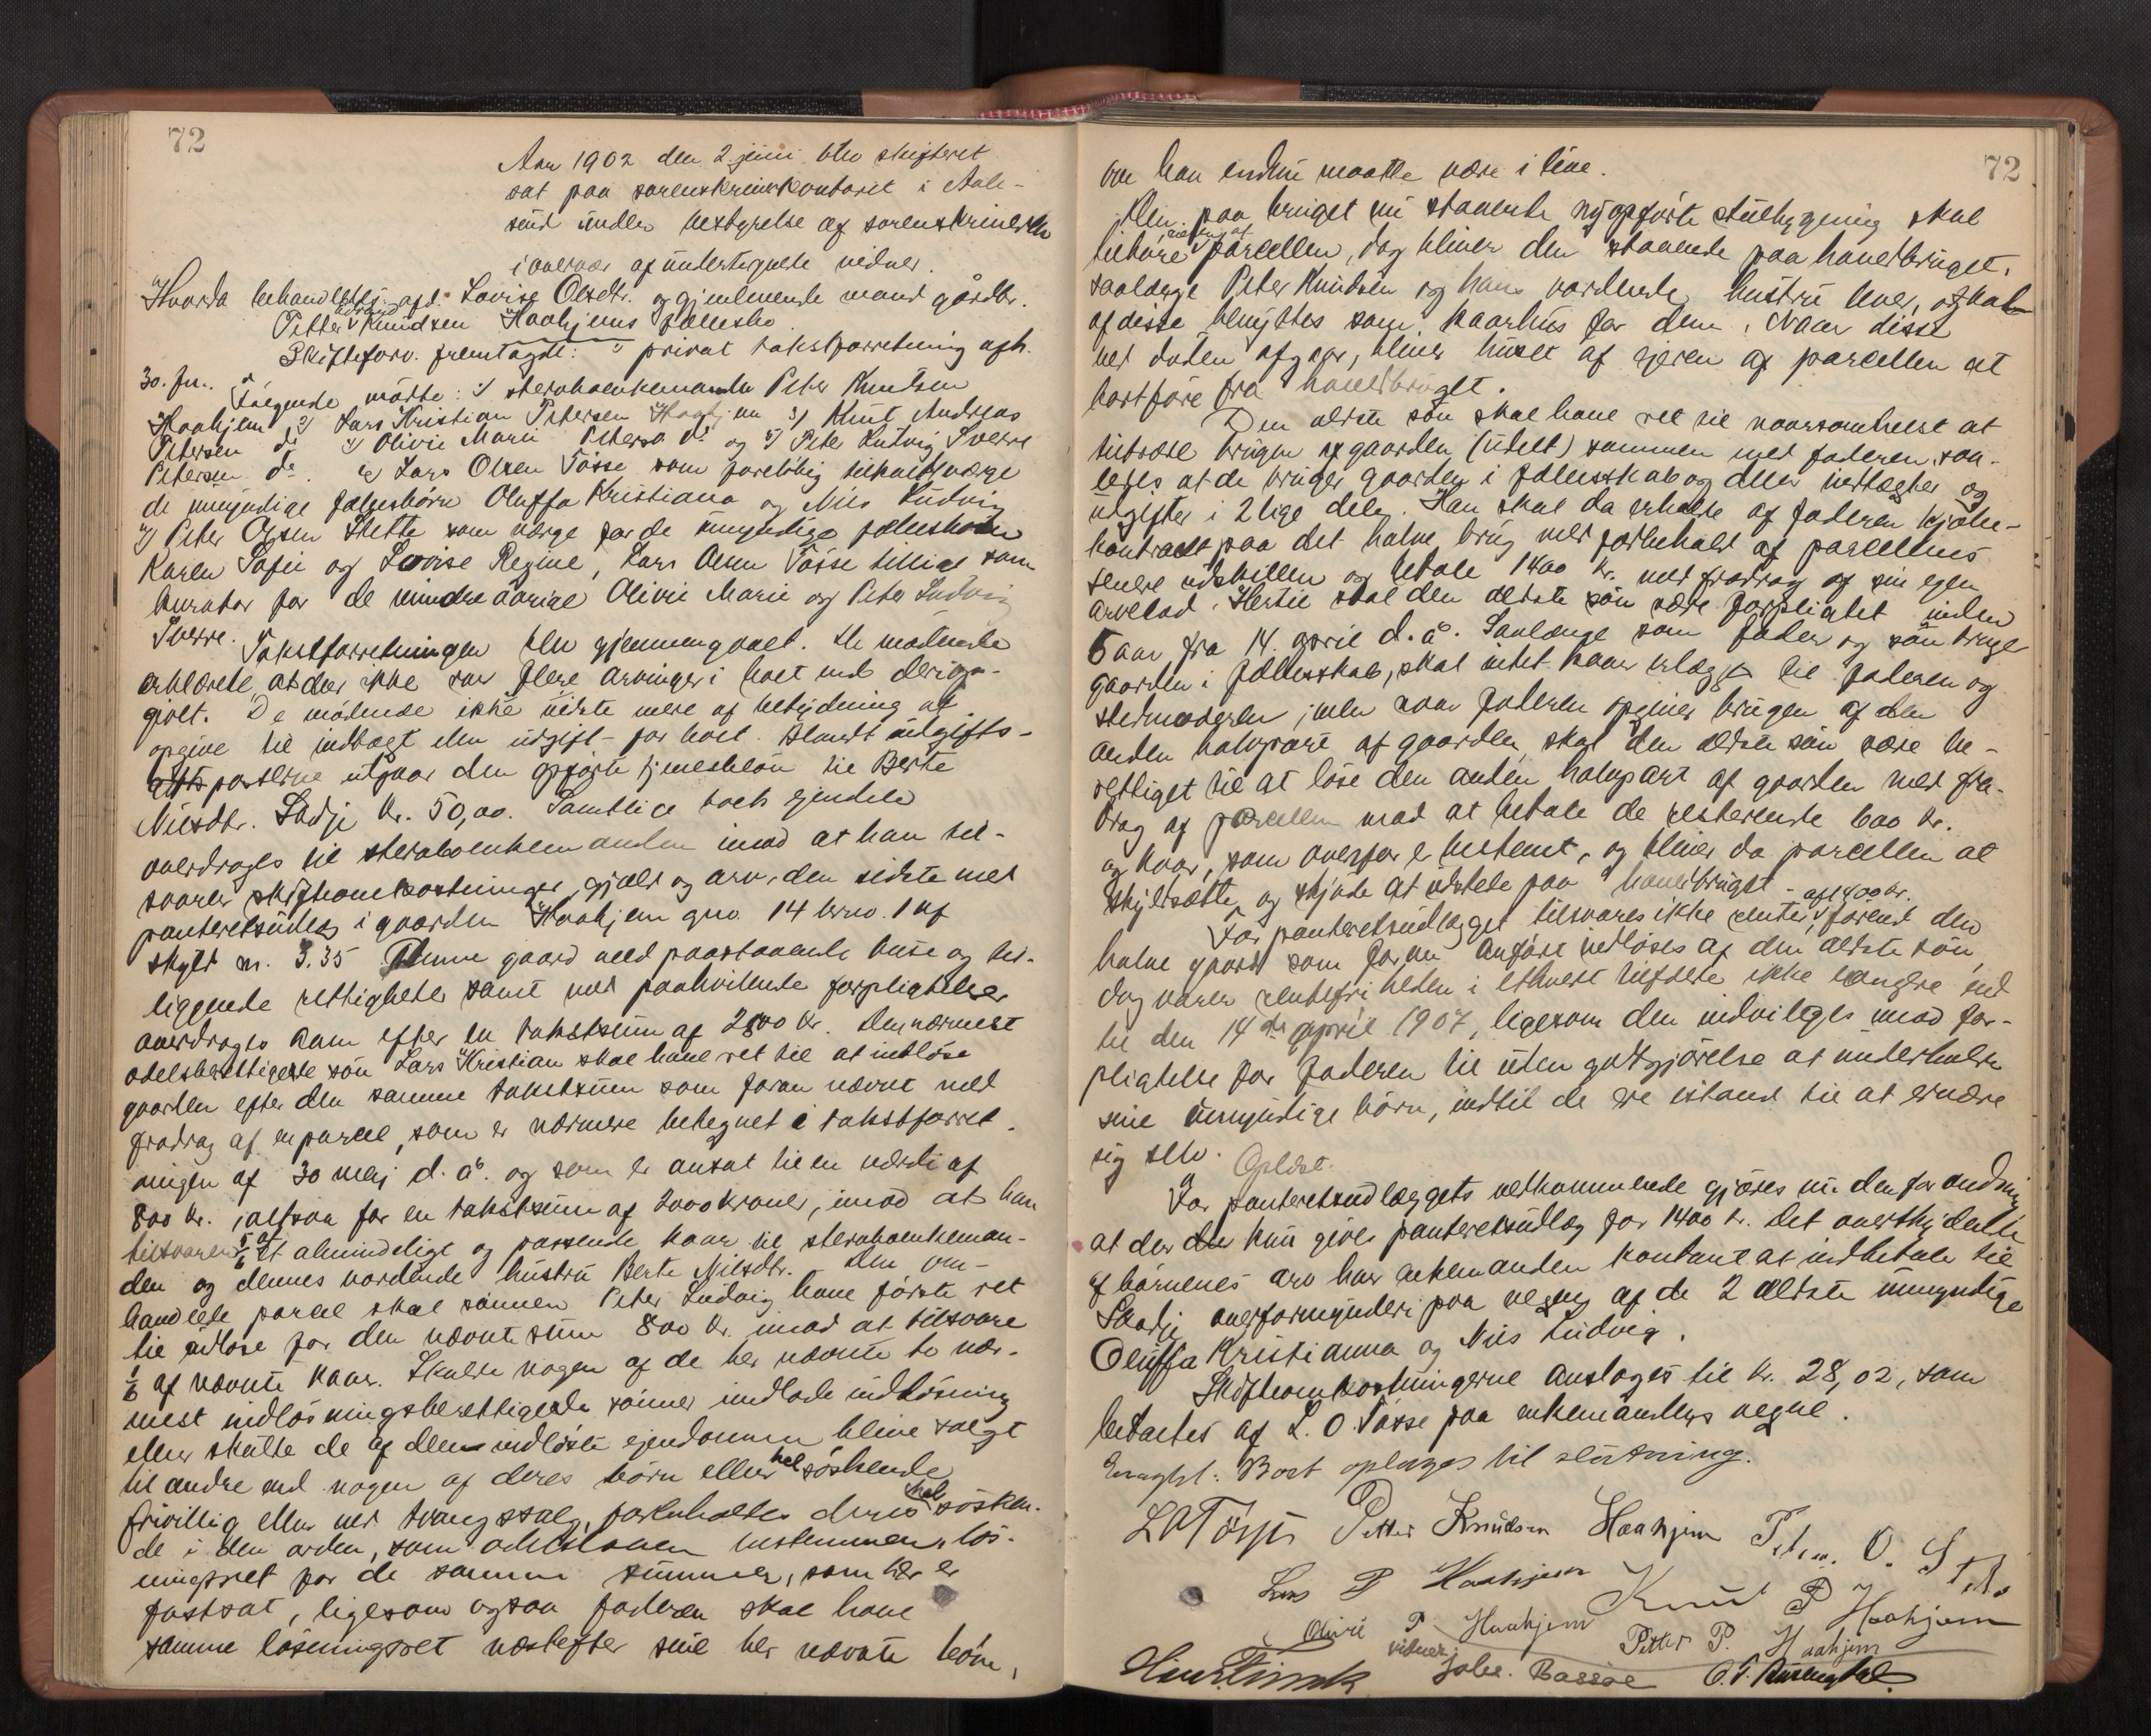 72
Aar 1902 den 2 juni blev skifteret
sat paa sorenskriverkontoret i Aale-
sund under bestyrelse af sorenskriveren
i overvær af undertegnede vidner.
Hvorda behandledes: afd. Lovise Olsdtr. og gjenlevende mand gårdbr.
Petter Knudsen Haahjems fællesbo
Skifteforv. fremlagde: privat takstforretning afh.
30. f.m. Følgende mødte: 1) sterboenkemanden Peter Knudsen
Haahjem 2) Lars Kristian Petersen Haahjem 3) Knut Andreas
Petersen do 4) Olivie Marie Petersd. do og 5) Peter Ludvig Sverre
Petersen do. 6) Lars Olsen Tøsse som foreløbig beskikket værge
de umyndige fællesbørn Oluffa Kristiana og Nils Ludvig
7) Peter Olsen Stette som værge for de umyndige fællesbørn
Karen Sofie og Lovise Regine, Lars Olsen Tøsse tillige som
kurator for de mindreaarige Olivie Marie og Peter Ludvig
Sverre. Takstforretningen blev gjennemgaaet. De mødende
erklærede, at der ikke var flere arvinger i boet end derigj-
givet. De mødende ikke vidste mere af betydning at
opgive til indtægt eller udgift for boet. Blandt udgifts-
posterne utgaar den opførte tjenesteløn til Berte
Nilsdtr. Skodje kr. 50,00. Samtlige boets eiendele
overdroges til sterboenkemanden imod at han til-
svarer skifteomkostninger, gjæld og arv, den sidste med
panteretsudlæg i gaarden Haahjem gno. 14 brno. 1 af
skyld m. 3.35 Denne gaard med paastaaende huse og til-
liggende rettigheter samt med paahvilende forpligtelser
overdroges ham efter en takstsum af 2800 kr. Den nærmest
odelsberettigede søn Lars Kristian skal have ret til at indløse
gaarden efter den samme takstsum som foran nævnt med
fradrag af en parcel, som er nærmere betegnet i takstforret-
ningen af 30 maj d. å. og som er ansat til en værdi af
800 kr. i altsaa for en takstsum af 2000 kroner, imod at han
tilsvarer 5/6 af et almindelige og passende kaar til sterboenkeman-
den og dennes vordende hustru Berte Nilsdtr. Den om-
handlede parcel skal sønnen Peter Ludvig have første ret
til at løse for den nævnte sum 800 kr. imod at tilsvare
1/6 af nævnte kaar. Skulde nogen af de her nævnte to nær-
mest indløsningsberettigede sønner undlade indløsning
eller skulde de af dem indløste ejendomme blive solgt
til andre end nogen af deres børn eller helsøskende
frivillig eller ved tvangssalg, forbeholdes deres helsøsken-
de i den orden, som odelsloven bestemmer, løs-
ningsret for de samme summer, som her er
fastsat, ligesom ogsaa faderen skal have
samme løsningsret næstefter sine her nævnte børn,
72
om han endnu maatte være i live.
Den paa bruget nu staaende nyopførte stuebygning skal
tilhøre eieren af parcellen, dog bliver den staaende paa hovedbruget,
saalænge Peter Knudsen og hans vordende hustru lever, og skal
af disse benyttes som kaarhus for dem. Naar disse
ved døden afgaar, bliver huset af ejeren af parcellen at
bortføre fra hovedbruget.
Den ældste søn skal have ret til naarsomhelst at
tiltræde brugen af gaarden (udelt) sammen med faderen saa-
ledes at de bruger gaarden i fællesskab og deler indtægter og
utgifter i 2 lige dele. Han skal da erholde af faderen kjøbe-
kontrakt paa det halve brug med forbehold af parcellens
senere udskillen og betale 1400 kr. med fradrag af sin egen
arvelod. Hertil skal den ældste søn være forpligtet inden
5 aar fra 14. april d. å. Saalænge som fader og søn bruge
gaarden i fællesskab, skal intet kaar erlægges til faderen og
stedmoderen; men naar faderen opgiver brugen af den
anden halvpart af gaarden skal den ældste søn være be-
rettiget til at løse den anden halvpart af gaarden med fra-
drag af parcellen mod at betale de resterende 600 kr.
og kaar, som ovenfor er bestemt, og bliver da parcellen at
skyldsætte og skjøde at udstede paa hovedbruget.
For panteretsudlægget tilsvares ikke renter af 1400 kr. førend den
halve gaard som foran anført indløses af den ældste søn,
dog varer rentefriheden i ethvert tilfælde ikke længere end
til den 14de april 1907, ligesom den indvilges imod for-
pligtelse for faderen til uden godtgjørelse at underholde
sine umyndige børn, indtil de er istand til at ernære
sig selv. Oplæst.
For panteretsudlæggets vedkommende gjøres nu den forandring
at der kun gives panteretsudlæg for 1400 kr. Det overskydende
af børnenes arv har enkemanden kontant at indbetale til
Skodje overformynderi paa vegne af de 2 ældste umyndige
Oluffa Kristianna og Nils Ludvig.
Skifteomkostningerne anslages til kr. 28,02, som
betaltes af L. O. Tøsse paa enkemandens vegne.
Eragtet: Boet optages til slutning.
L O Tøsse Petter Knudsen Haahjem Peter. O. Stette
Lars P Haahjem Knut P Haahjem
Olivie P. Haahjem Petter P. Haahjem
vidner:
Johs. Bassøe